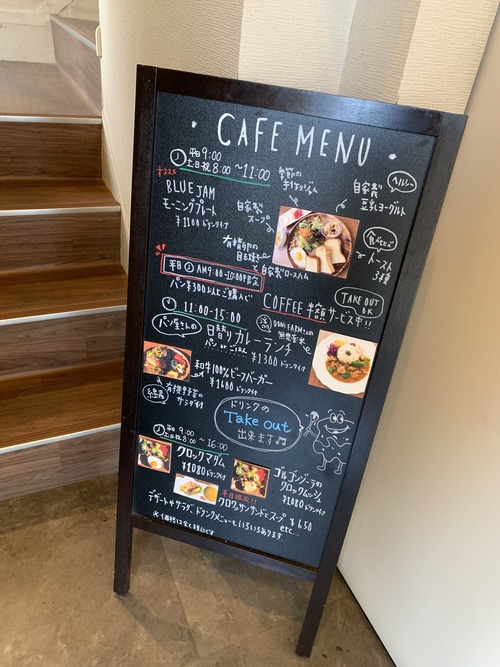 CAFE MENU
平日 9:00
土日祝 8:00 〜11:00
オススメ
BLUE JAM
モーニングプレート
¥1100 ドリンク付
季節の
手作りジャム
自家製
スープ
自家製
豆乳ヨーグルト
ヘルシー
食べてね
トースト
3種
有精卵の
目玉焼き
と自家製ロースハム
平日 AM9:00-10:00限定
パン¥300以上ご購入で
COFFEE 半額サービス中!!
TAKE OUT
OK
11:00-15:00
パン屋さんの
日替りカレーランチ
パン or ごはん
¥1300 ドリンク付
DONI FARMさんの
無農薬米
和牛100%ビーフバーガー
¥1400 ドリンク付
有機野菜の
サラダ付
ドリンクの
Take out
出来ます♫
平日 9:00
土日祝 8:00 〜 16:00
クロックマダム
¥1080 ドリンク付
ゴルゴンゾーラの
クロックムッシュ
¥1080 ドリンク付
平日限定!!
クロワッサンサンドとスープ ¥650
デザートやサラダ、ドリンクメニューもいろいろあります etc...
※価格は全て税込です